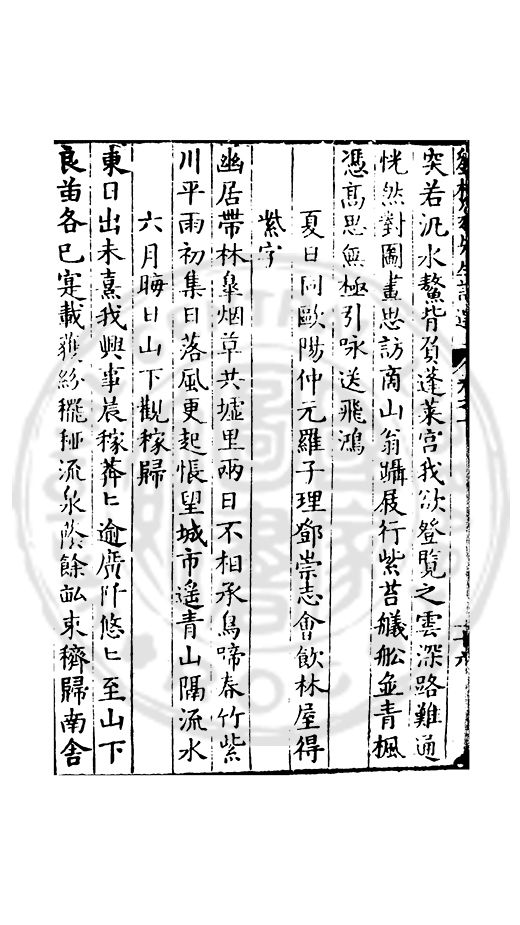 突若汎水鰲背負蓬萊宮我欲登覽之雲深路難通
恍然對圖畫思訪商山翁躡屐行紫苔艤舩並青楓
憑高思無極引咏送飛鴻
夏日同歐陽仲元羅子理鄧崇志會飲林屋得
紫字
幽居帶林皐烟草共墟里兩日不相承鳥啼春竹紫
川平雨初集日落風更起悵望城市遙青山隔流水
六月晦日山下觀稼歸
東日出未熹我興事晨稼莽匕逾廣阡悠匕至山下
良苗各已寔載穫紛穲稏流泉蔭餘畆束穧歸南舍